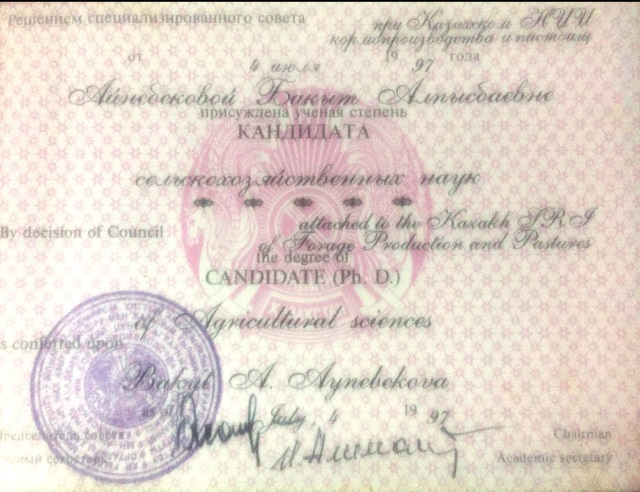 Решением специализированного совета при Казахском НИИ
кормопроизводства и пастбищ
от 4 июля 1997 года
Айнебековой Бакыт Алпысбаевне
присуждена ученая степень
КАНДИДАТА
сельскохозяйственных наук
By decision of Council attached to the Kazakh SRI
of Forage Production and Pastures
the degree of
CANDIDATE (Ph. D.)
of Agricultural sciences
is conferred upon
Bakyt A. Aynebekova
as of July, 4 1997
Председатель совета Chairman
Ученый секретарь Academic secretary